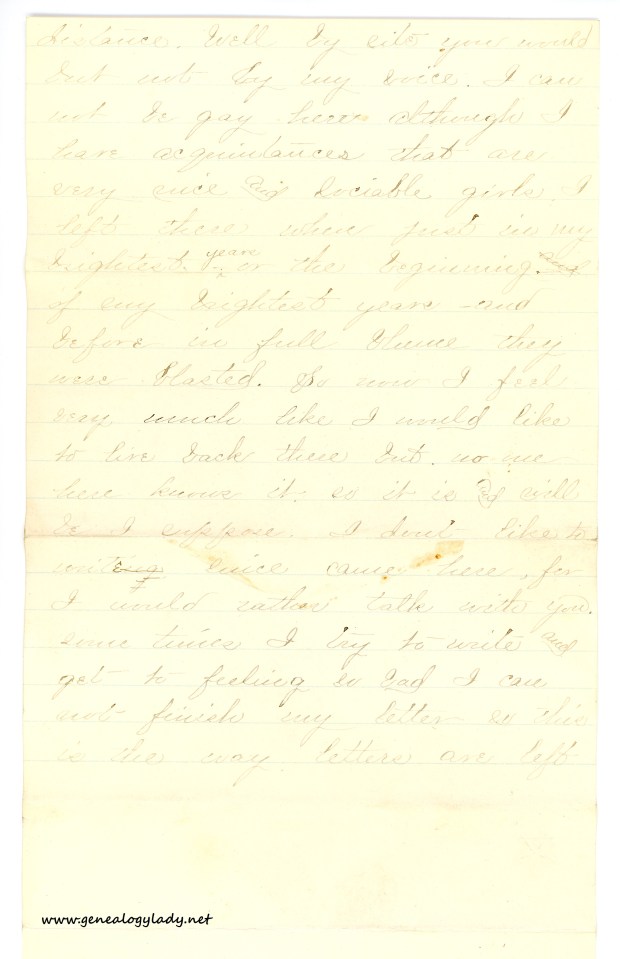 distance. Well by site you would
but not by my voice. I can
not be gay here although I
have acquintances that are
very nice and sociable girls. I
left there when just in my
brightest years or the beginning
of my brightest years - and
before in full blume they
were blasted. So now I feel
very much like I would like
to live back there but no one
here knows it. so it is and will
be I suppose. I dont like to
write since came here, for
I would rather talk with you.
some times I try to write and
get to feeling so bad I can
not finish my letter so this
is the way letters are left
www.genealogylady.net